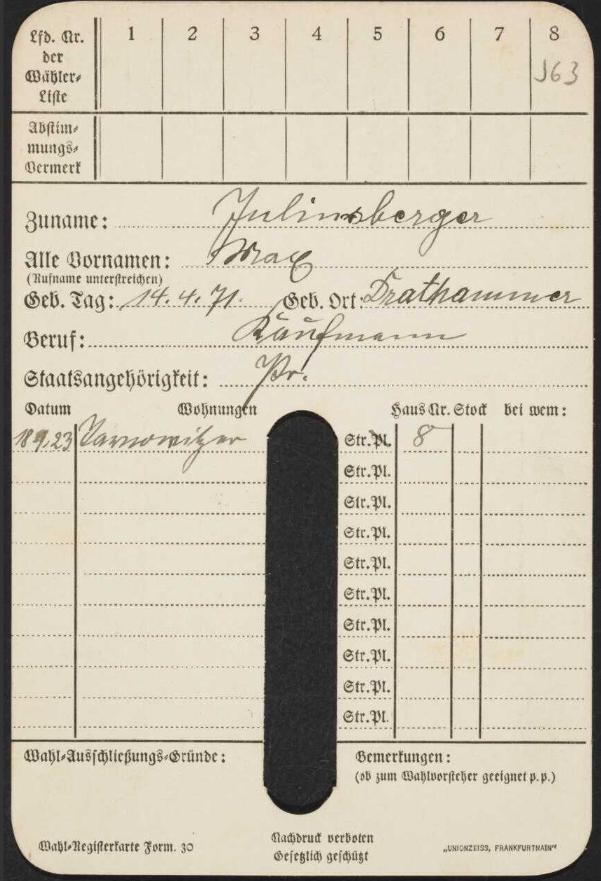 Lfd. Nr. der Wähler-Liste 1 2 3 4 5 6 7 8
J63
Abstim-
mungs-
Vermerk
Zuname: Juliusberger
Alle Vornamen: Max
(Rufname unterstreichen)
Geb. Tag: 14. 4. 71. Geb. Ort: Drathammer
Beruf: Kaufmann
Staatsangehörigkeit: Pr.
Datum Wohnungen Haus Nr. Stock bei wem:
18.9.23 Tarnowitzer Str. Pl. 8
Str. Pl.
Str. Pl.
Str. Pl.
Str. Pl.
Str. Pl.
Str. Pl.
Str. Pl.
Str. Pl.
Str. Pl.
Wahl-Ausschließungs-Gründe: Bemerkungen:
(ob zum Wahlvorsteher geeignet p.p.)
Wahl-Registerkarte Form. 30 Nachdruck verboten
Gesetzlich geschützt „UNIONZEISS, FRANKFURTMAIN“